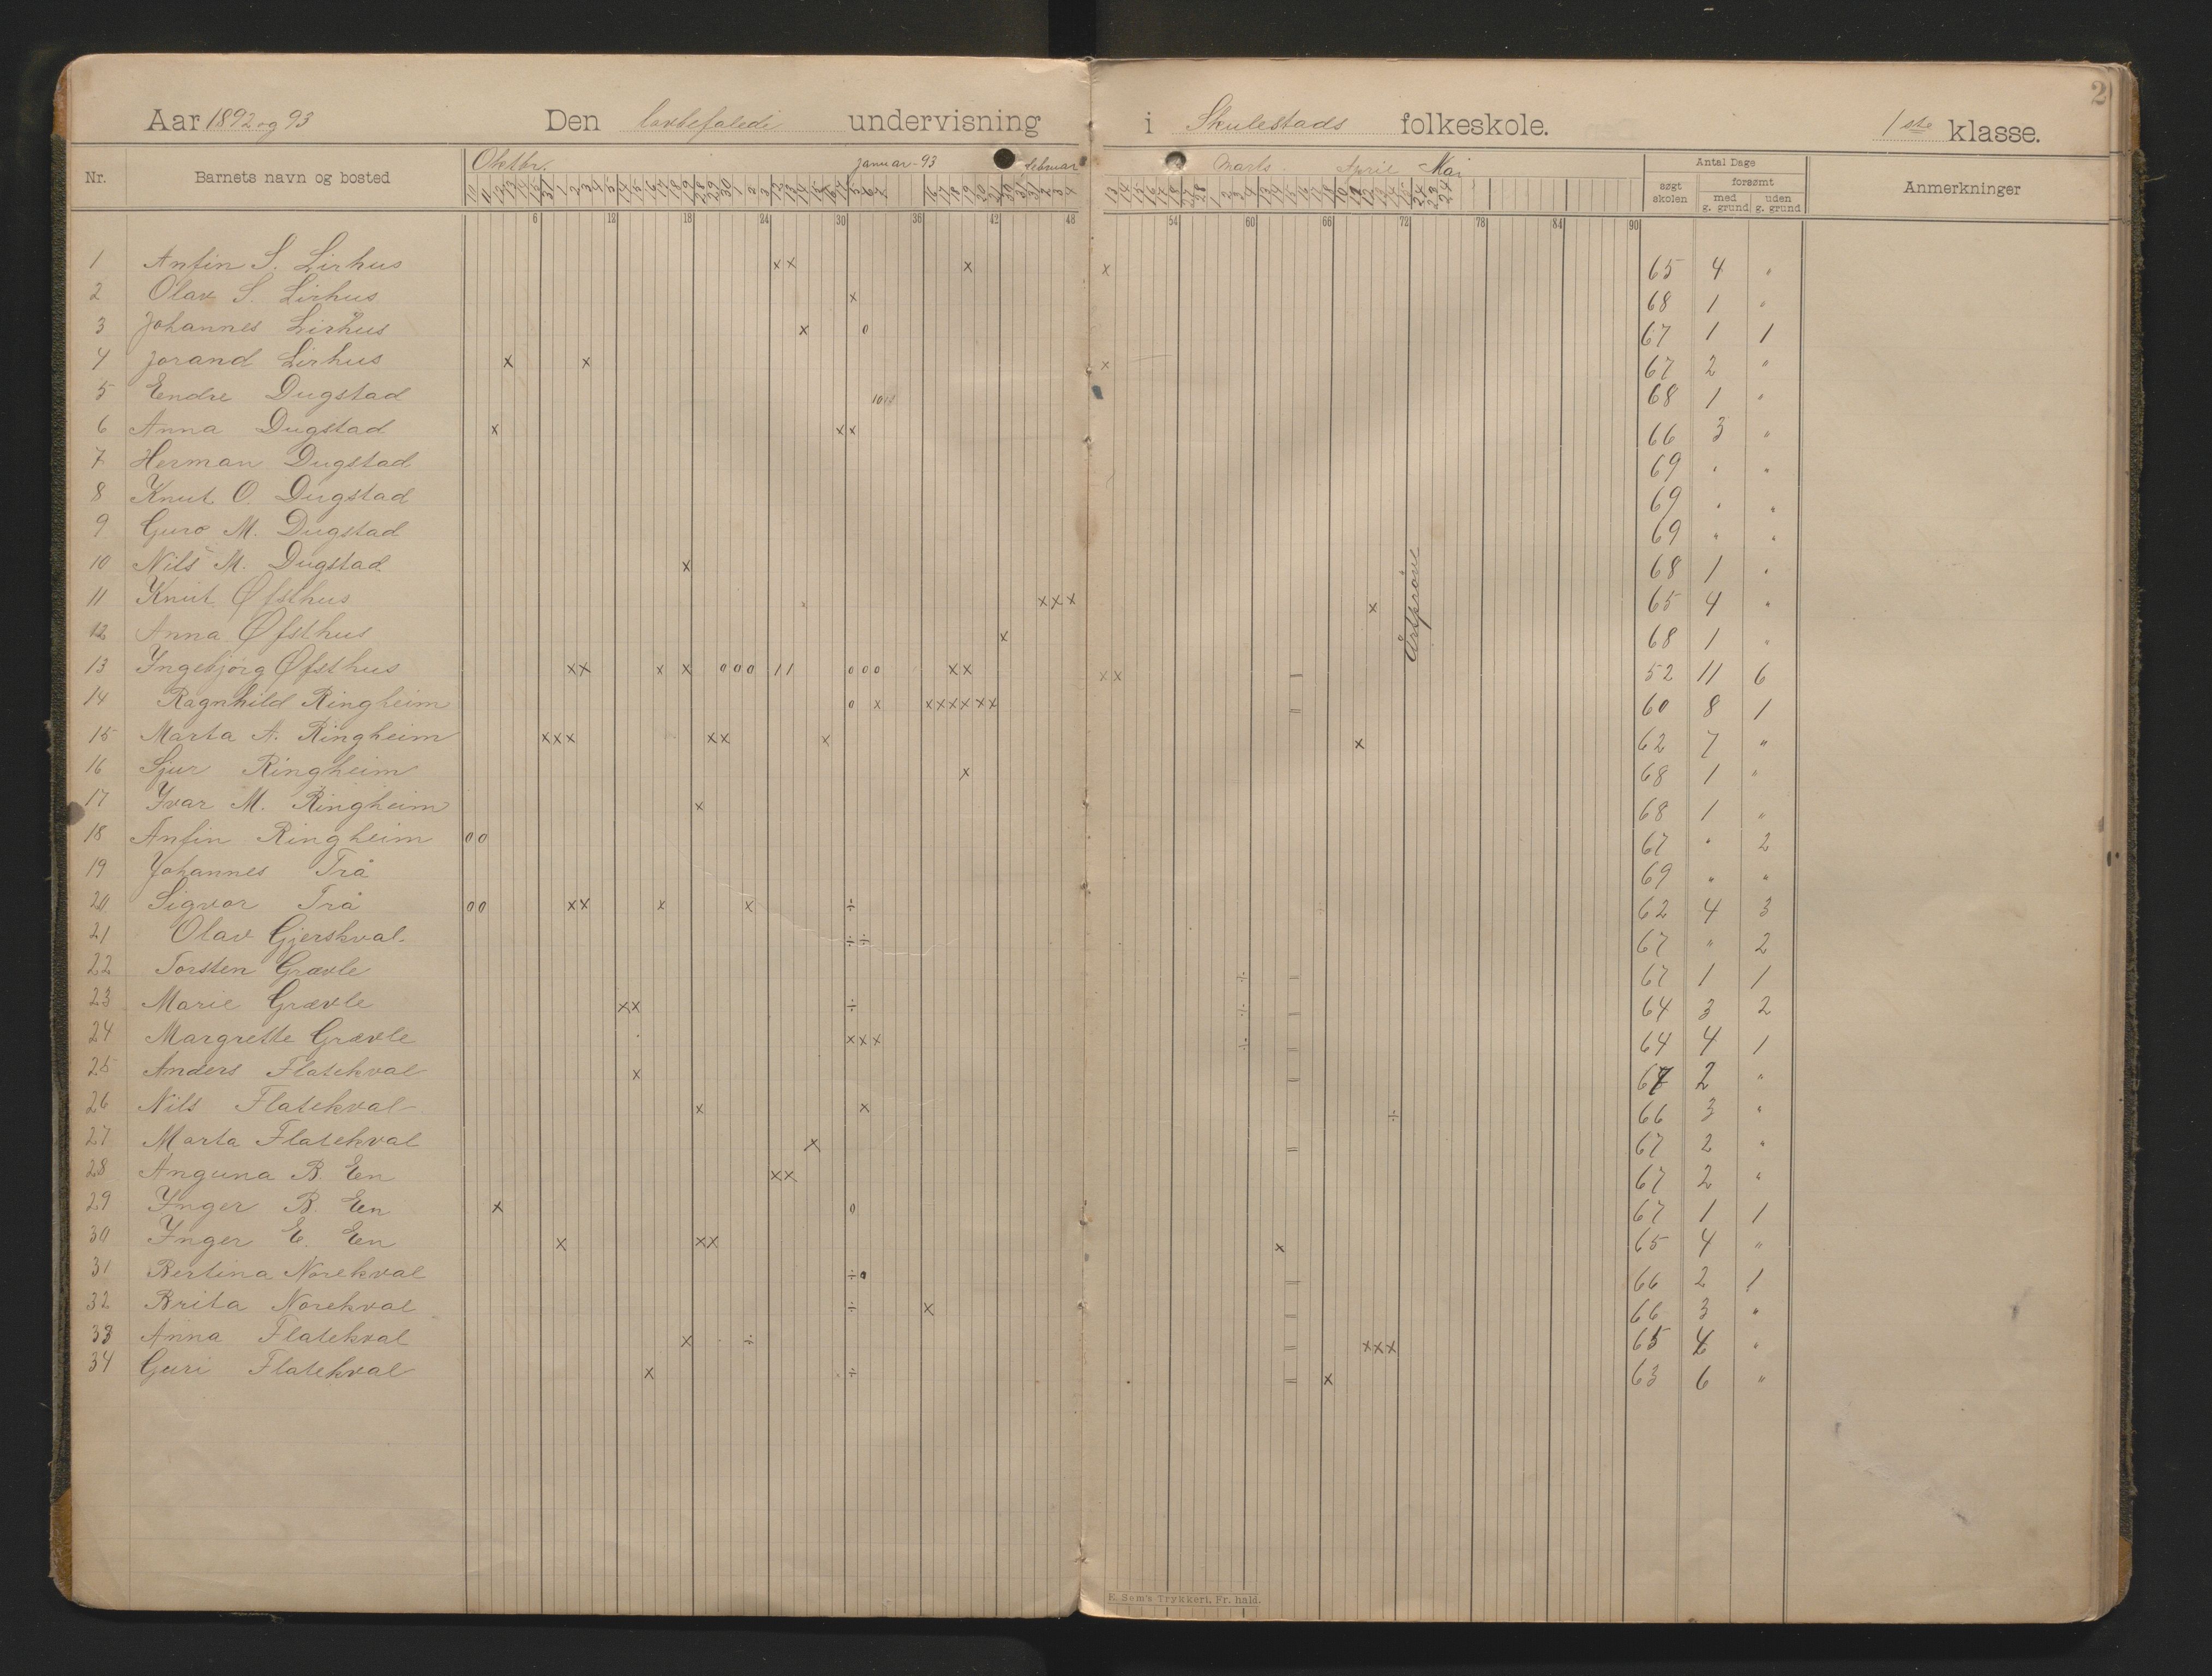 2
Aar 1892 og 93 Den lovbefalede undervisning i Skulestads folkeskole. 1ste klasse.
Oktbr. Januar-93 februar Marts April Mai
Nr. Barnets navn og bosted Antal Dage søgt skolen forsømt med g. grund uden g. grund Anmerkninger
6 12 18 24 30 36 42 48 54 60 66 72 78 84 90
1 Anfin S. Lirhus x x x x 65 4 "
2 Olav S. Lirhus x 68 1 "
3 Johannes Lirhus x 0 67 1 1
4 Jorand Lirhus x x x 67 2 "
5 Endre Dugstad 68 1 "
6 Anna Dugstad x x x 66 3 "
7 Herman Dugstad 69 " "
8 Knut O. Dugstad 69 " "
9 Guro M. Dugstad 69 " "
10 Nils M. Dugstad x 68 1 "
11 Knut Øfsthus x x x x 65 4 "
12 Anna Øfsthus x 68 1 "
13 Yngebjörg Øfsthus x x x x 0 0 0 1 1 0 0 0 x x x x – 52 11 6
14 Ragnhild Ringheim 0 x x x x x x x = 60 8 1
15 Marta A. Ringheim x x x x x x x 62 7 "
16 Sjur Ringheim x 68 1 "
17 Yvar M. Ringheim x 68 1 "
18 Anfin Ringheim 0 0 67 " 2
19 Johannes Trå 69 " "
20 Sigvor Trå 0 0 x x x x ÷ 62 4 3
21 Olav Gjerskval ÷ ÷ 67 " 2
22 Torsten Grævle ÷ = 67 1 1
23 Marie Grævle x x ÷ ÷ = 64 3 2
24 Margrette Grævle x x x ÷ = 64 4 1
25 Anders Flatekval x = 67 2 "
26 Nils Flatekval x x ÷ 66 3 "
27 Marta Flatekval x = 67 2 "
28 Anguna B. En x x 67 2 "
29 Ynger B. En x 0 67 1 1
30 Ynger E. En x x x x 65 4 "
31 Bertina Norekval ÷ 0 = 66 2 1
32 Brita Norekval ÷ x = 66 3 "
33 Anna Flatekval x ÷ = x x x 65 4 "
34 Guri Flatekval x ÷ = x 63 6 "
Årsprøve
E. Sem's Trykkeri, Fr. hald.